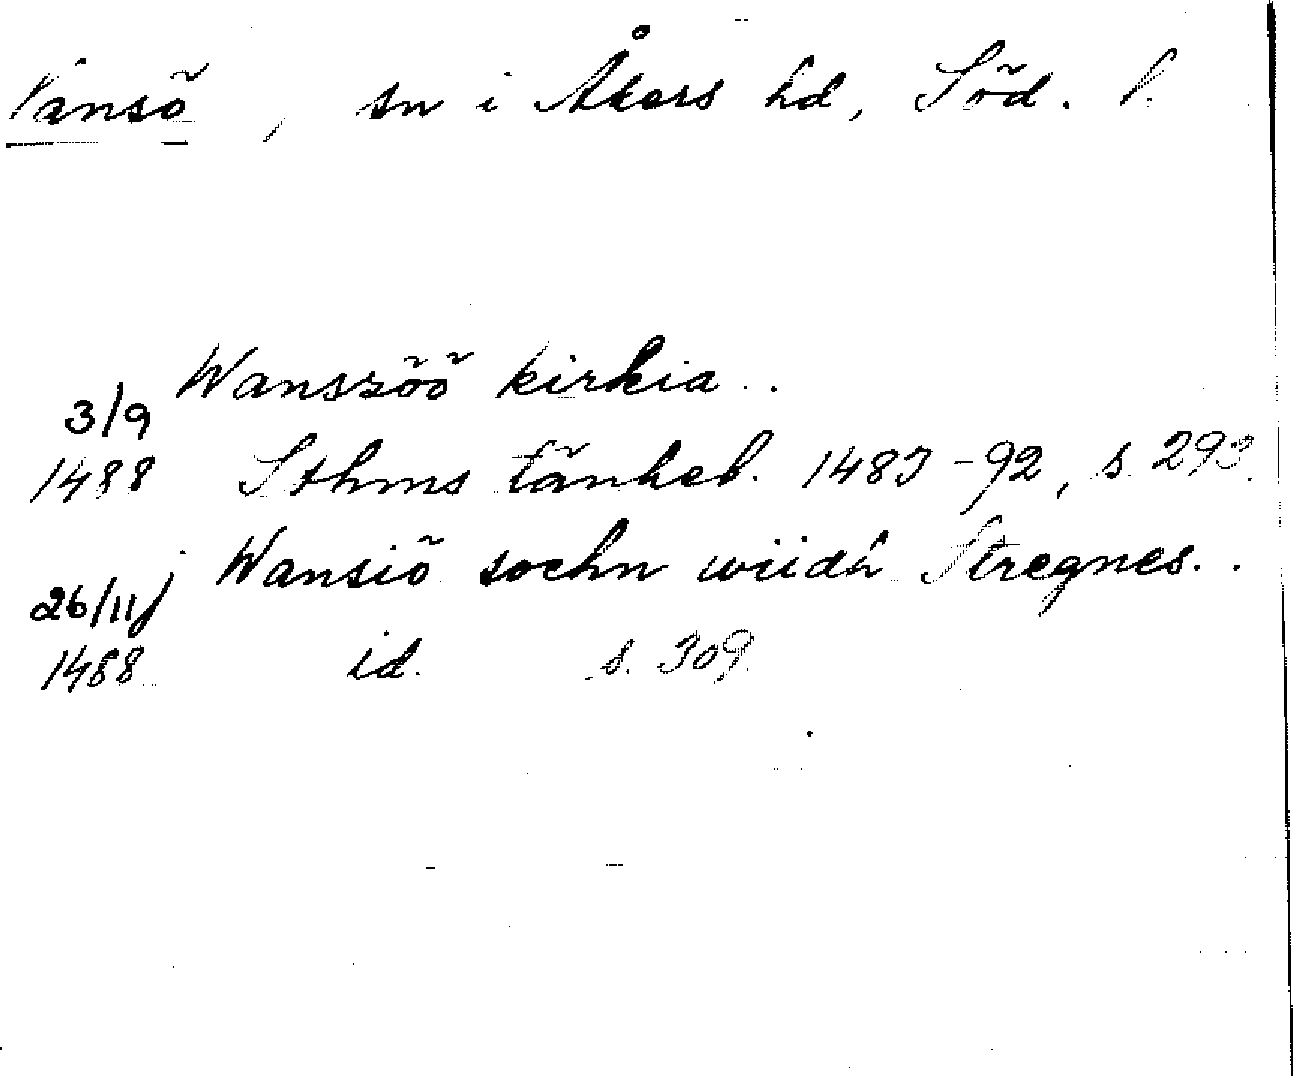 Vansö, sn i Åkers hd, Söd. l.
Wansszöö kirkia..
3/9
1488 Sthms tänkeb. 1483-92, s. 293.
j Wansiö sochn wiidh Stregnes..
26/11
1488 id. s. 309.